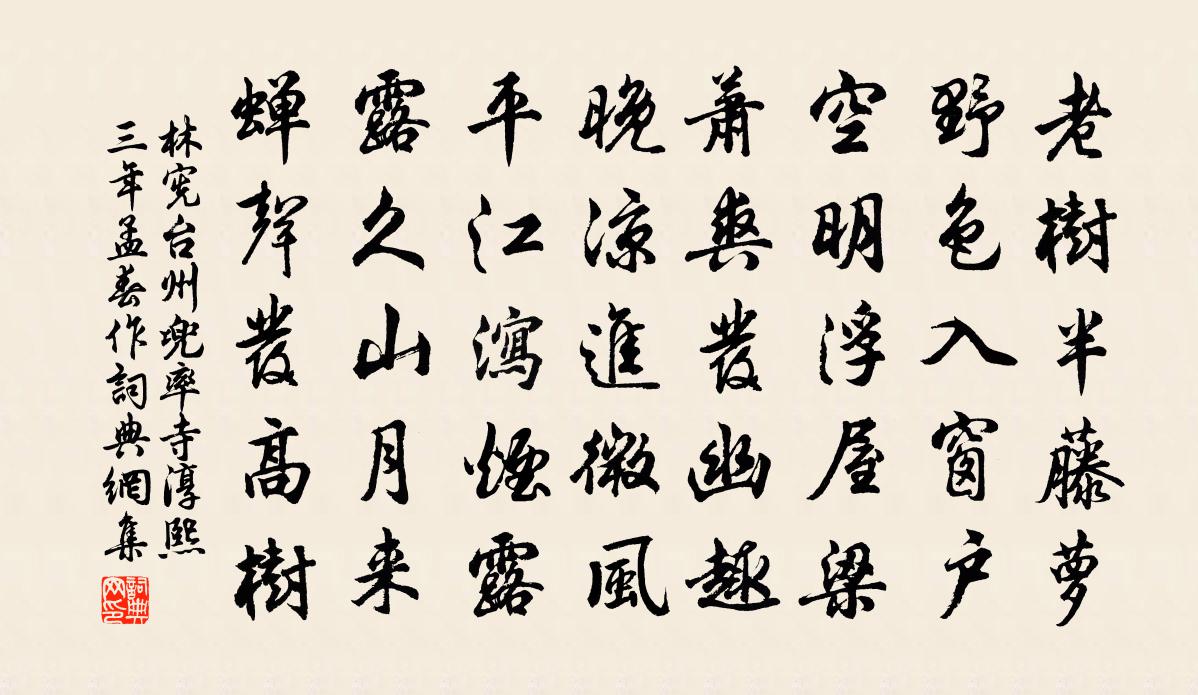 老樹半藤蘿
野色入窗户
空明浮屋梁
蕭爽發幽趣
晚涼進微風
平江瀉煙露
露久山月来
蝉聲發高樹
林宪台州兜率寺淳熙
三年孟春作詞典網集
詞典网印